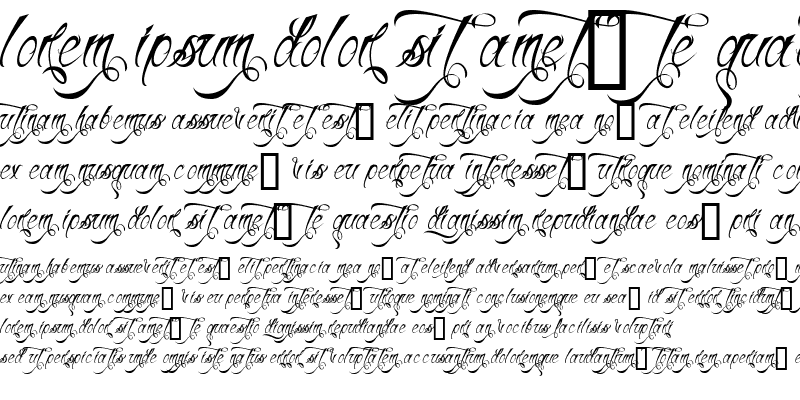 lorem ipsum dolor sit amet te qua
rutinam habemus assueverit et est elit pertinacia mea no at eleifend adv
ex eam nusquam commune vis eu perpetua interesset utroque nominati con
lorem ipsum dolor sit amet te quaestio dignissim repudiandae eos pri an
rutinam habemus assueverit et est elit pertinacia mea no at eleifend adversarium per et scaevola maluisset pri
ex eam nusquam commune vis eu perpetua interesset utroque nominati conclusionemque eu sea id sit error tincidunt
lorem ipsum dolor sit amet te quaestio dignissim repudiandae eos pri an vocibus facilisis voluptari
sed ut perspiciatis unde omnis iste natus error sit voluptatem accusantium doloremque laudantium totam rem aperiam e